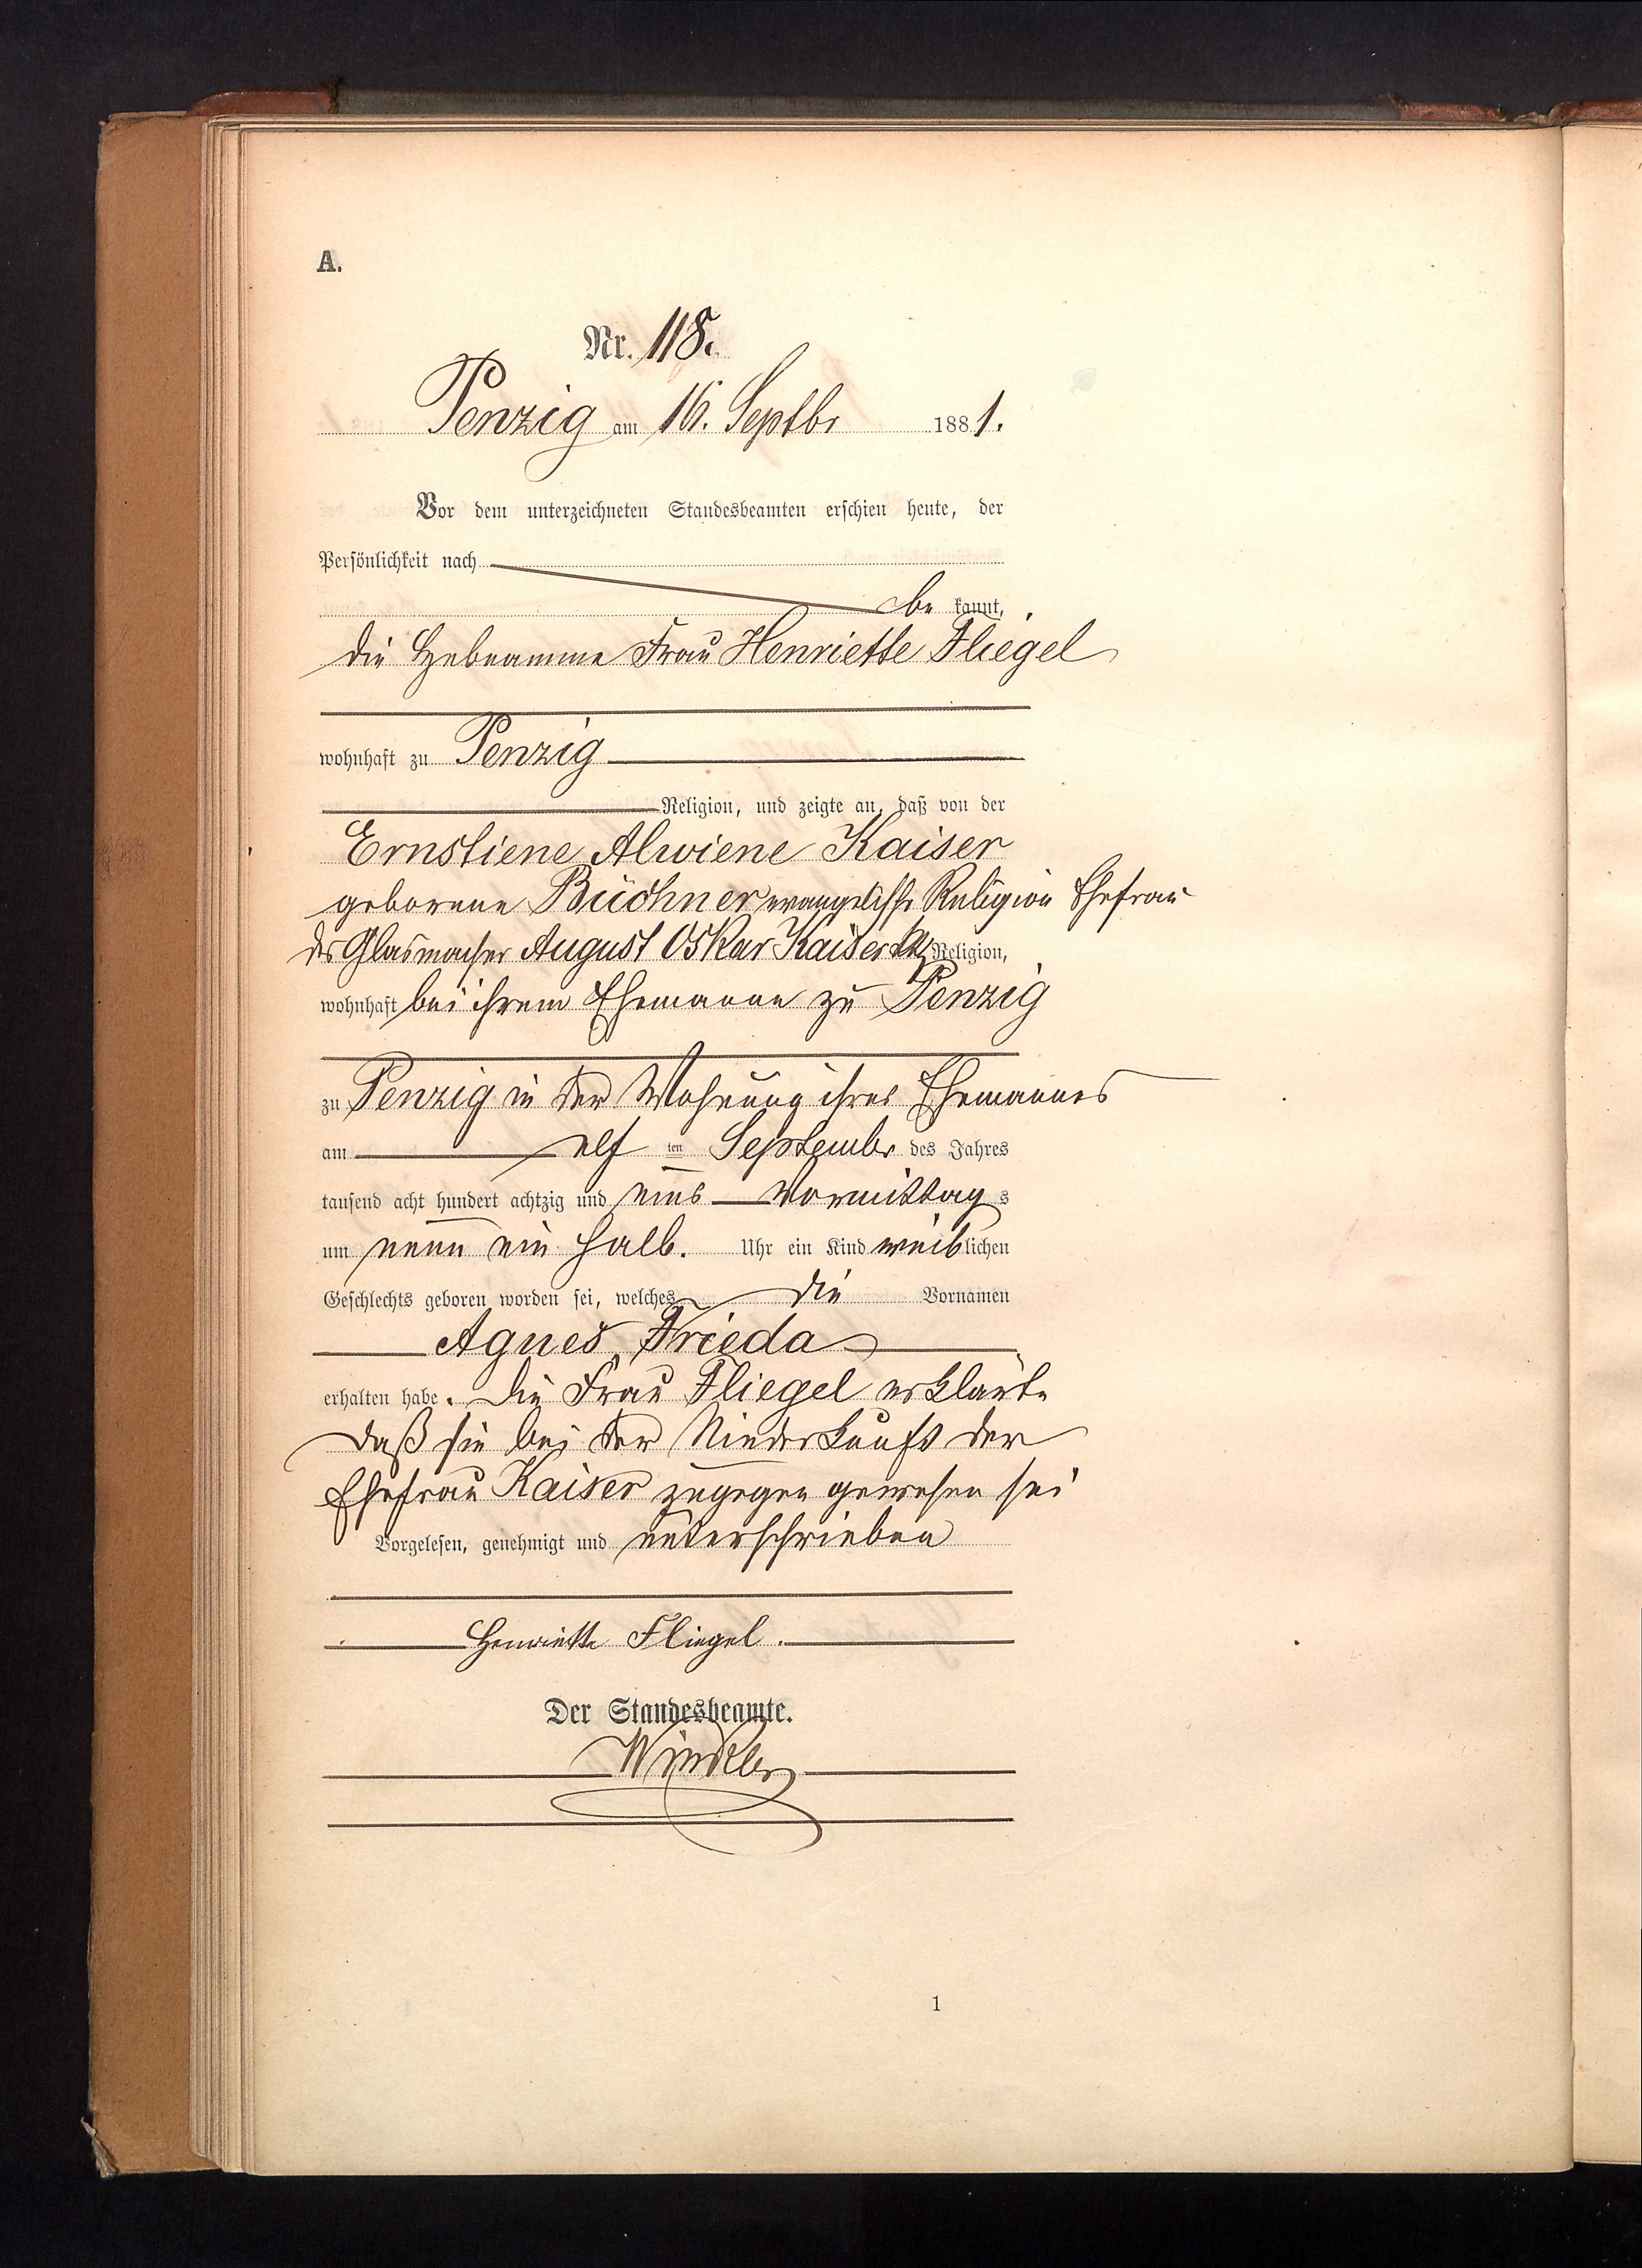 A.
Nr. 118.
Penzig am 16. Septbr 1881.
Vor dem unterzeichneten Standesbeamten erschien heute, der
Persönlichkeit nach
be kannt,
die Hebeamme Frau Henriette Fliegel
wohnhaft zu Penzig
Religion, und zeigte an, daß von der
Ernstiene Alwiene Kaiser
geborene Büchner evangelische Religion Ehefrau
des Glasmacher August Oskar Kaiser Religion,
wohnhaft bei ihrem Ehemanne zu Penzig
zu Penzig in der Wohnung ihres Ehemannes
am elf ten September des Jahres
tausend acht hundert achtzig und eins Vormittag s
um neun ein halb. Uhr ein Kind weiblichen
Geschlechts geboren worden sei, welches die Vornamen
Agnes Frieda
erhalten habe. Die Frau Fliegel erklärte
daß sie bei der Niederkunft der
Ehefrau Kaiser zugegen gewesen sei
Vorgelesen, genehmigt und unterschrieben
Henriette Fliegel.
Der Standesbeamte.
Winkler
1